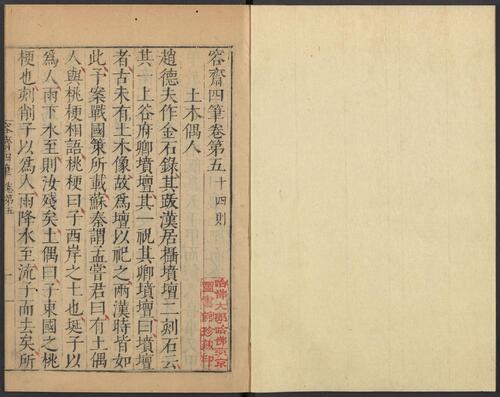 容齋四筆卷第五十四則
土木偶人
趙德夫作金石錄其跋漢居攝墳壇二刻石云
其一上谷府卿墳壇其一祝其卿墳壇曰墳壇
者古未有土木像故爲壇以祀之兩漢時皆如
此予案戰國策所載蘇秦謂孟嘗君曰有土偶
人與桃梗相語桃梗曰子西岸之土也埏子以
爲人雨下水至則汝殘矣土偶曰子東國之桃
梗也刻削子以爲人雨降水至流子而去矣所
容齋四筆 卷第五
一
哈佛大學哈佛燕京
圖書館珍藏印